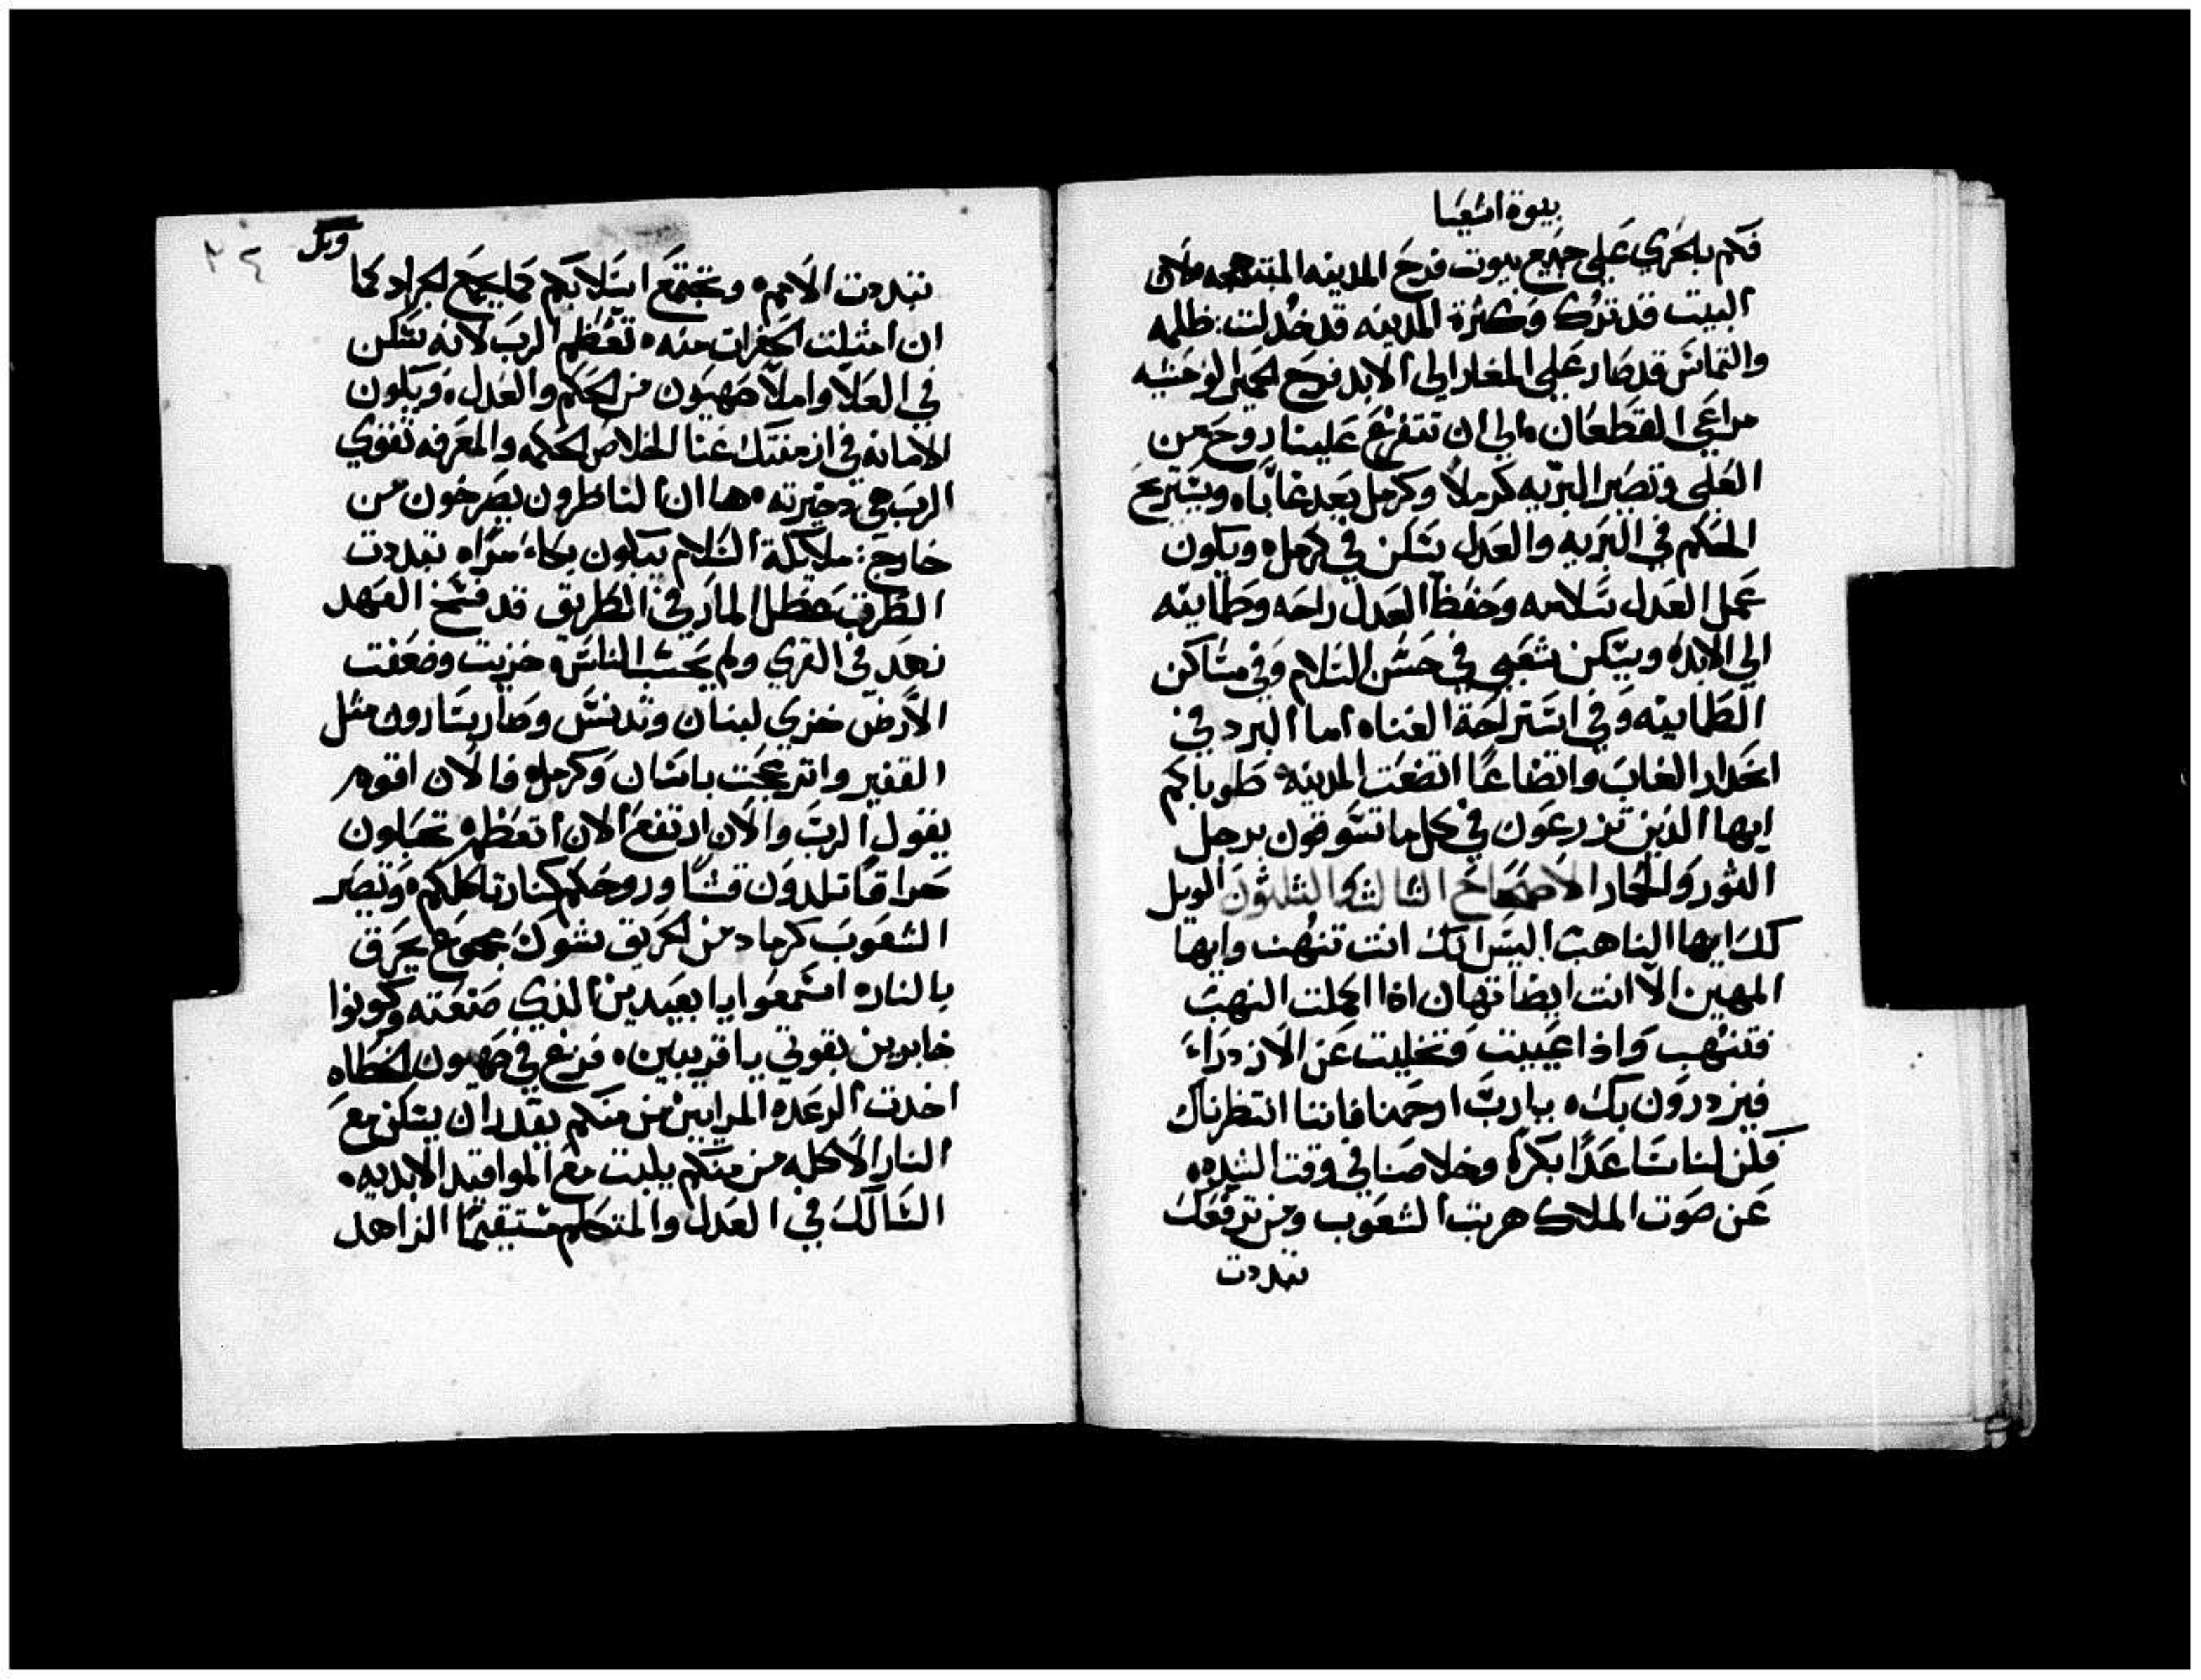 بنوة اشعيا
فكم بلحري على جميع بيوت فرح المدينه المبتهجه لان
البيت قد ترك وكثرة المدينه قد خدلت: ظلمه
والتماس قد صار على المغاير الى الابد فرح الحمير الوحشيه
مراعي القطعان الى ان تتفرغ علينا روح من
العلى وتصير البريه كرملا وكرمل يعد غابًاه ويستريح
الحكم في البريه والعدل يسكن في كرمله ويكون
عمل العدل سلامه وحفظ العدل راحه وطمانينه
الى الابده ويسكن شعبي في حسن السلام وفي مساكن
الطمانينه وفي استراحة الغناه اما البرد في
انحدار الغاب واتضاعًا اتضعت المدينه طوباكم
ايها الذين تزرعون في كل ما تسوقون برجل
الثور والحمار الاصحاح الثالث والثلثون الويل
لك ايها الناهب اليس انك انت تنهب وايها
المهين الا انت ايضا تهان اذا اكملت النهب
فتنهب واذا عييت وتخليت عن الازدراء
فيزدرون بك يارب ارحمنا فاننا انتظرناك
فكن لنا ساعدًا بكرة وخلاصنا في وقت الشده
عن صوت الملاك هربت الشعوب ومن ترفعك
تبددت
٣٤
ويل
تبددت الامم وتجتمع اسلابكم كما يجمع الجراد كما
ان امتلت الحفرات منه تعظم الرب لانه سكن
في العلا واملا صهيون من الحكم والعدل ويكون
الامانه في ازمنتك غنا الخلاص الحكمه والمعرفه تقوي
الرب هي دخيرته ها ان الناطرون يصرخون من
خارج: ملايكة السلام يبكون بكاء مرًاه تبددت
الطرق بطل المار في الطريق قد فسخ العهد
نعد في القري ولم يحسب الناس خزيت وضعفت
الارض خزي لبنان وتدنس وصار سارون مثل
القفير وانزعجت باسان وكرمل فالان اقوم
يقول الرب والان ارتفع الان اتعظم تحبلون
حرا قاتلدون قشًا وروحكم كنار تاكلكم وتصير
الشعوب كرماد من الحريق شوك مجموع يحرق
بالناره اسمعوا يا بعيدين الذي صنعته وكونوا
خابرين بقوتي يا قريبين فزع في صهيون الخطاه
اخدت الرعده المرايين من منكم يقدر ان يسكن مع
النار الاكله من منكم يلبت مع المواقيد الابديه
السالك في العدل والمتكلم مستقيمًا الزاهد